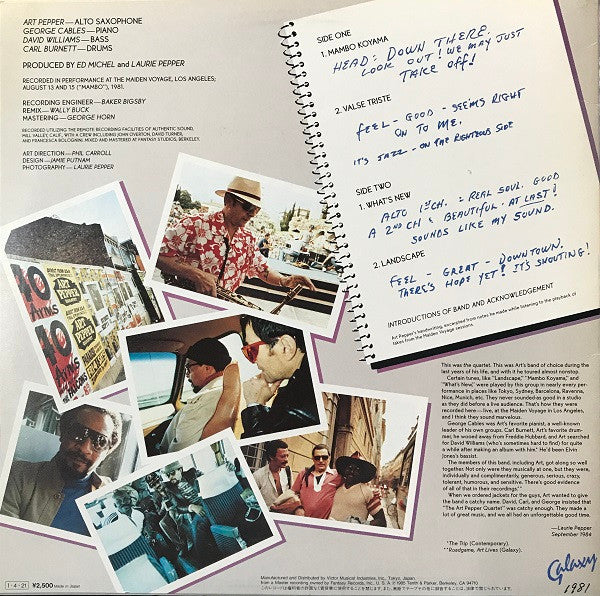 ART PEPPER—ALTO SAXOPHONE
GEORGE CABLES—PIANO
DAVID WILLIAMS—BASS
CARL BURNETT—DRUMS
PRODUCED BY ED MICHEL and LAURIE PEPPER
RECORDED IN PERFORMANCE AT THE MAIDEN VOYAGE, LOS ANGELES;
AUGUST 13 AND 15 ("MAMBO"), 1981.
RECORDING ENGINEER—BAKER BIGSBY
REMIX—WALLY BUCK
MASTERING—GEORGE HORN
RECORDED UTILIZING THE REMOTE RECORDING FACILITIES OF AUTHENTIC SOUND,
MILL VALLEY, CALIF., WITH A CREW INCLUDING JOHN OVERTON, DAVID TURNER,
AND FRANCESCA BOLOGNINI. MIXED AND MASTERED AT FANTASY STUDIOS, BERKELEY.
ART DIRECTION—PHIL CARROLL
DESIGN—JAMIE PUTNAM
PHOTOGRAPHY—LAURIE PEPPER
SIDE ONE
1. MAMBO KOYAMA
HEAD: DOWN THERE.
LOOK OUT! WE MAY JUST
TAKE OFF!
2. VALSE TRISTE
FEEL - GOOD - SEEMS RIGHT
ON TO ME.
IT'S JAZZ - ON THE RIGHTEOUS SIDE
SIDE TWO
1. WHAT'S NEW
ALTO 1ST CH. = REAL SOUL. GOOD
A 2ND CH & BEAUTIFUL. AT LAST!
SOUNDS LIKE MY SOUND.
2. LANDSCAPE
FEEL - GREAT - DOWNTOWN.
THERE'S HOPE YET! IT'S SHOUTING!
INTRODUCTIONS OF BAND AND ACKNOWLEDGEMENT
Art Pepper's handwriting, excerpted from notes he made while listening to the playback of
takes from the Maiden Voyage sessions.
ART
PEPPER
This was the quartet. This was Art's band of choice during the
last years of his life, and with it he toured almost nonstop.
Certain tunes, like "Landscape," "Mambo Koyama," and
"What's New," were played by this group in nearly every perfor-
mance in places like Tokyo, Sydney, Barcelona, Ravenna,
Nice, Munich, etc. They never sounded as good in a studio
as they did before a live audience. That's how they were
recorded here—live, at the Maiden Voyage in Los Angeles,
and I think they sound marvelous.
George Cables was Art's favorite pianist, a well-known
leader of his own groups. Carl Burnett, Art's favorite drum-
mer, he wooed away from Freddie Hubbard, and Art searched
for David Williams (who's sometimes hard to find) for quite
a while after making an album with him.* He'd been Elvin
Jones's bassist.
The members of this band, including Art, got along so well
together! Not only were they musically at one, but they were,
individually and complimentarily, generous, serious, crazy,
tolerant, humorous, and sensitive. There's good evidence
of all of that in their recordings.**
When we ordered jackets for the guys, Art wanted to give
the band a catchy name. David, Carl, and George insisted that
"The Art Pepper Quartet" was catchy enough. They made a
lot of great music, and we all had an unforgettable good time.
—Laurie Pepper
September 1984
*The Trip (Contemporary).
**Roadgame, Art Lives (Galaxy).
Galaxy
1981
1·4·21
¥2,500 Made in Japan
Manufactured and Distributed by Victor Musical Industries, Inc., Tokyo, Japan.
from a Master recording owned by Fantasy Records, Inc., U.S.A. ℗ 1985 Tenth & Parker, Berkeley, CA 94710